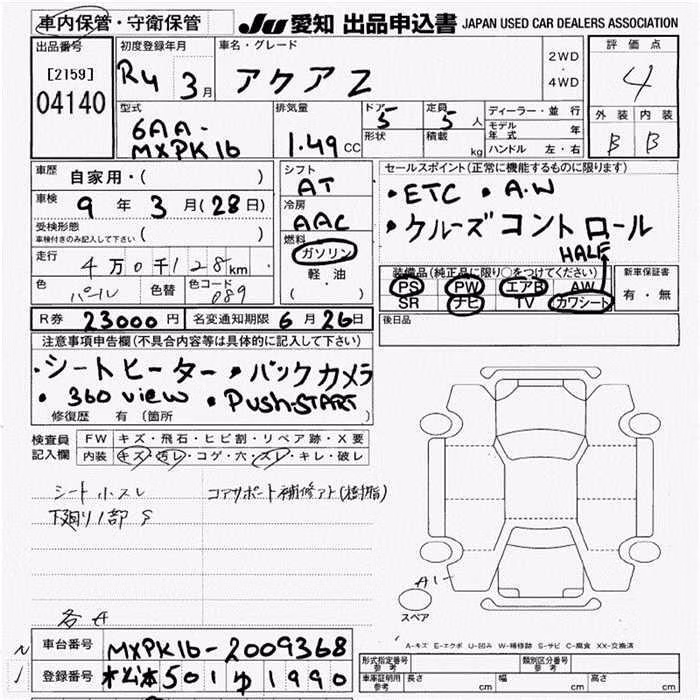 車内保管・守衛保管
JU 愛知 出品申込書 JAPAN USED CAR DEALERS ASSOCIATION
出品番号
[2159]
04140
初度登録年月
R4 3月
車名・グレード
アクア Z
2WD
・
4WD
評価点
4
外装 内装
B B
型式
6AA-
MXPK16
排気量
1.49 CC
ドア 5
形状
定員 5 人
積載 kg
ディーラー・並行
モデル年式 年
ハンドル 左・右
車歴 自家用・( )
車検 9年 3月(28日)
受検形態
車検付きのみ記入して下さい ( )
走行 4万0千128km
色 パール 色替 色コード 089
シフト
AT
冷房
AAC
燃料
ガソリン
軽・油
( ・ )
セールスポイント(正常に機能するものに限ります)
・ETC ・A.W
・クルーズコントロール
HALF
装備品(純正品に限り○をつけてください)
PS PW エアB AW
SR ナビ TV カワシート
新車保証書
有・無
R券 23000円 名変通知期限 6月26日
後日品
注意事項申告欄(不具合内容等は具体的に記入して下さい)
・シートヒーター ・バックカメラ
・360 view ・PUSH-START
修復歴 有(箇所 )
検査員記入欄
FW キズ・飛石・ヒビ割・リペア跡・X要
内装 キズ・汚レ・コゲ・穴・スレ・キレ・破レ
シート小スレ
コアサポート補修アト(樹脂)
下廻り1部 S
各A
A1
スペア
A-キズ E-エクボ U-凹み W-補修跡 S-サビ C-腐食 XX-交換済
車台番号 MXPK16-2009368
登録番号 松本 501 ゆ 1990
型式指定番号 参考
類別区分番号 参考
車庫証明用 参考 長さ cm 幅 cm 高さ cm